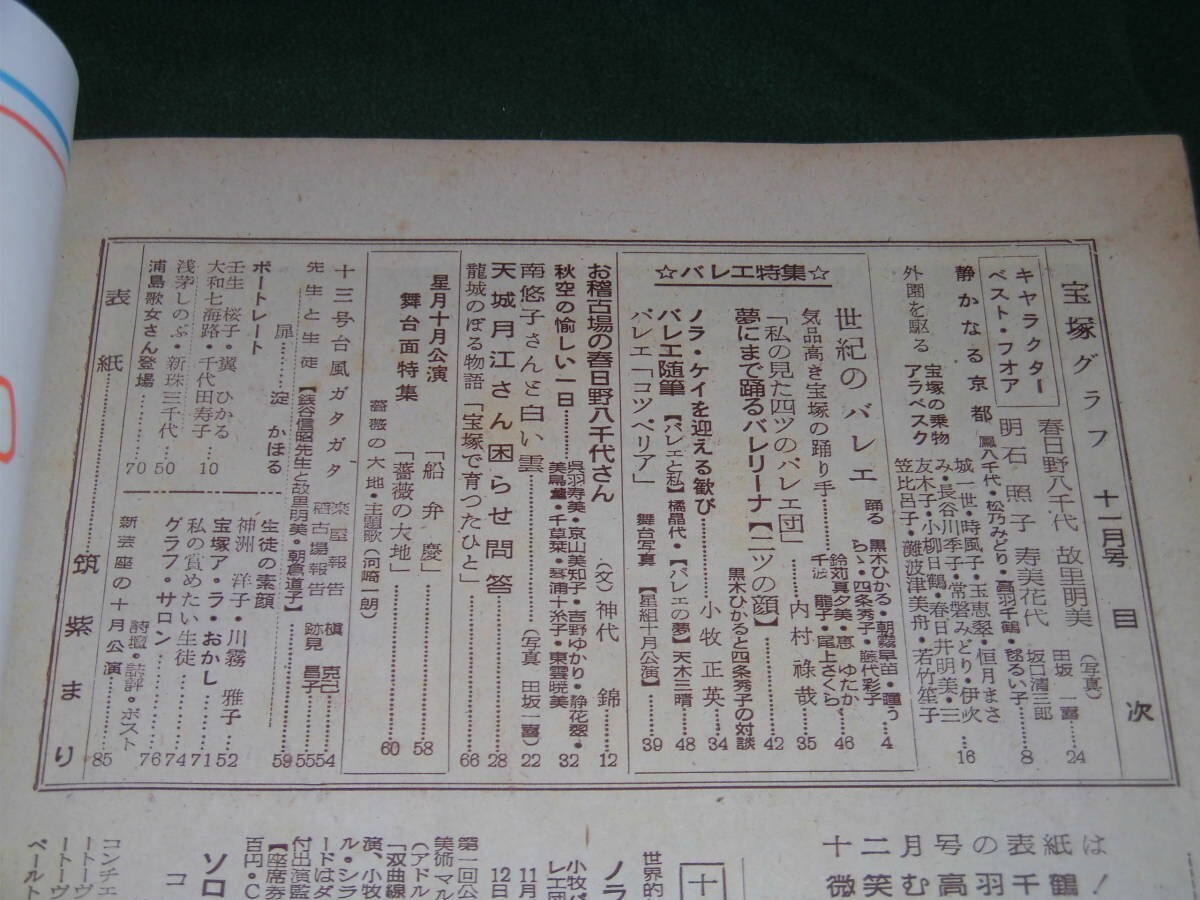 宝塚グラフ 十一月号 目次
キャラクター
ベスト・フオア
春日野八千代 故里明美
明石照子 寿美花代
(写真)
田坂一
坂口清三郎
24
静かなる京都
鳳八千代・松乃みどり・高羽千鶴・
るい子
8
外園を駆る 宝塚の乗物
アラベスク
城一世・時風子・玉恵翠・恒月まさ
み・長谷川季子・常磐みどり・伊吹
友木子・小柳日鶴・春日井明美・三
笠比呂子・灘波津美舟・若竹笙子
16
☆バレエ特集☆
世紀のバレエ
踊る
黒木ひかる・朝霧早苗・
ら・四条秀子・藤代彩子
4
気品高き宝塚の踊り手
鈴苅真夕美・恵ゆたか
千波 静子・尾上さくら
46
「私の見た四ツのバレエ団」 内村祿哉 35
夢にまで踊るバレリーナ【二ツの顔】 黒木ひかると四条秀子の対談 42
ノラ・ケイを迎える歓び 小牧正英 34
バレエ随筆【バレエと私】橘晶代・【バレエの夢】天木三晴 48
バレエ「コツペリア」 舞台写真【星組十月公演】 39
お稽古場の春日野八千代さん (文)神代錦 12
秋空の愉しい一日
呉羽寿美・京山美知子・吉野ゆかり・静花翠・
美鳥薫・千草栞・琴浦十糸子・東雲暁美
32
南悠子さんと白い雲 (写真 田坂一) 22
天城月江さん困らせ問答 28
龍城のぼる物語「宝塚で育つたひと」 66
星月十月公演
舞台面特集
「船弁慶」 58
「薔薇の大地」 60
薔薇の大地・主題歌(河崎一朗)
十三号台風ガタガタ
楽屋報告 槇克巳 54
稽古場報告 跡見昌子 55
先生と生徒【銭谷信昭先生と故里明美・朝倉道子】 59
扉……淀かほる
ポートレート
壬生桜子・翼ひかる
大和七海路・千代田寿子 10
浅茅しのぶ・新珠三千代 50
浦島歌女さん登場 70
生徒の素顔
神洲洋子・川霧雅子 52
宝塚ア・ラ・おかし 71
私の賞めたい生徒 74
グラフ・サロン 76
詩壇・読評・ポスト
新芸座の十月公演 85
表紙……筑紫まり
は!
紙鶴
表千
の羽
号高
月む
二笑
十微
十
世界的
ノラ
小牧バ
レエ団
11月
12日
第一回公
美術マル
(アドル
「双曲線
演、小牧
ル・シラ
ードはダ
付出演監
【座席券
百円・C
ソロ
コ
コンチェ
ートーヴ
ートーヴ
ベールト